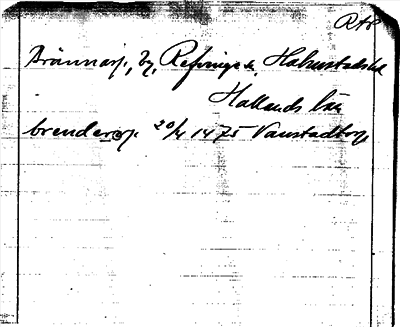 RAp
Brännarp, by, Refvinge s., Halmstads hd
Hallands län
brenderp. 20/4 1475 Vanstadtorp